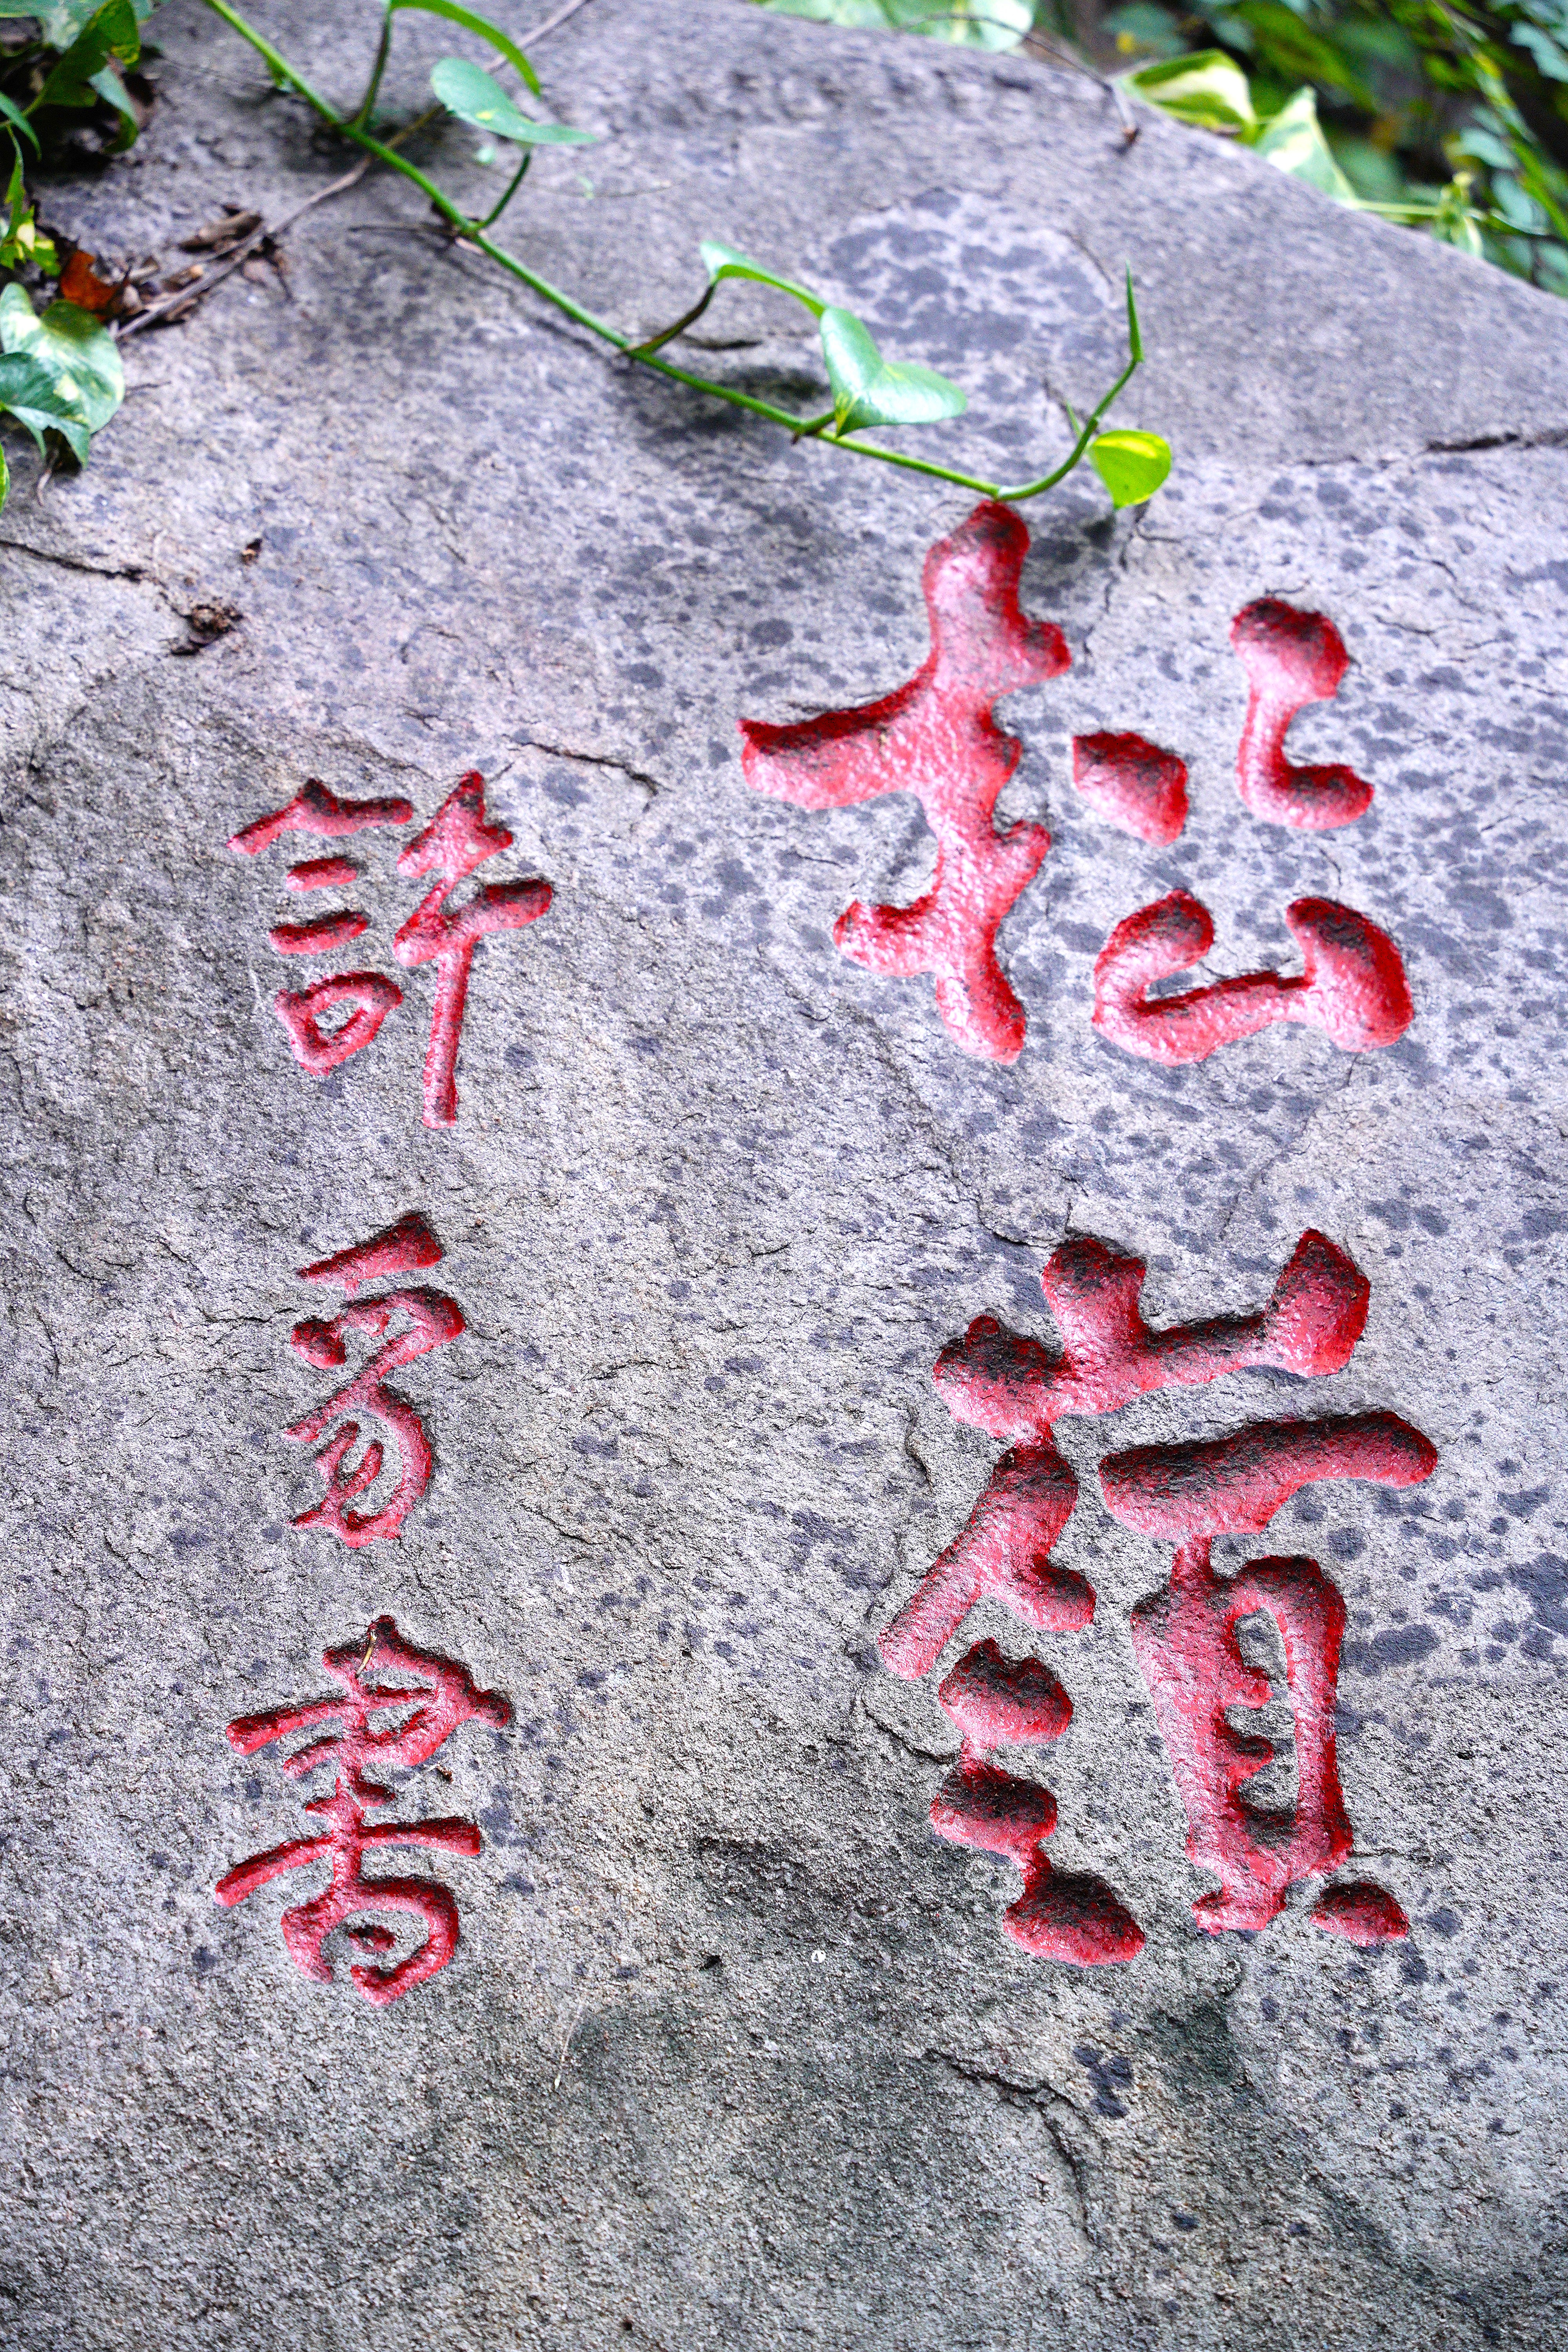 松嶺
許書